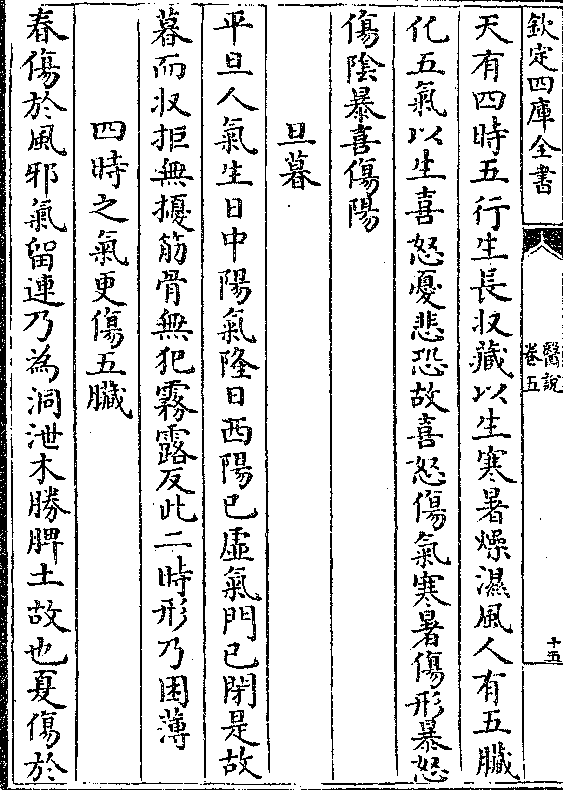 欽定四庫全書
醫說
卷五
十五
天有四時五行生長収藏以生寒暑燥濕風人有五臟
化五氣以生喜怒憂悲恐故喜怒傷氣寒暑傷形暴怒
傷陰暴喜傷陽
旦暮
平旦人氣生日中陽氣隆日西陽已虛氣門已閉是故
暮而収拒無擾筋骨無犯霧露反此二時形乃困薄
四時之氣更傷五臟
春傷於風邪氣留連乃為洞泄木勝脾土故也夏傷於